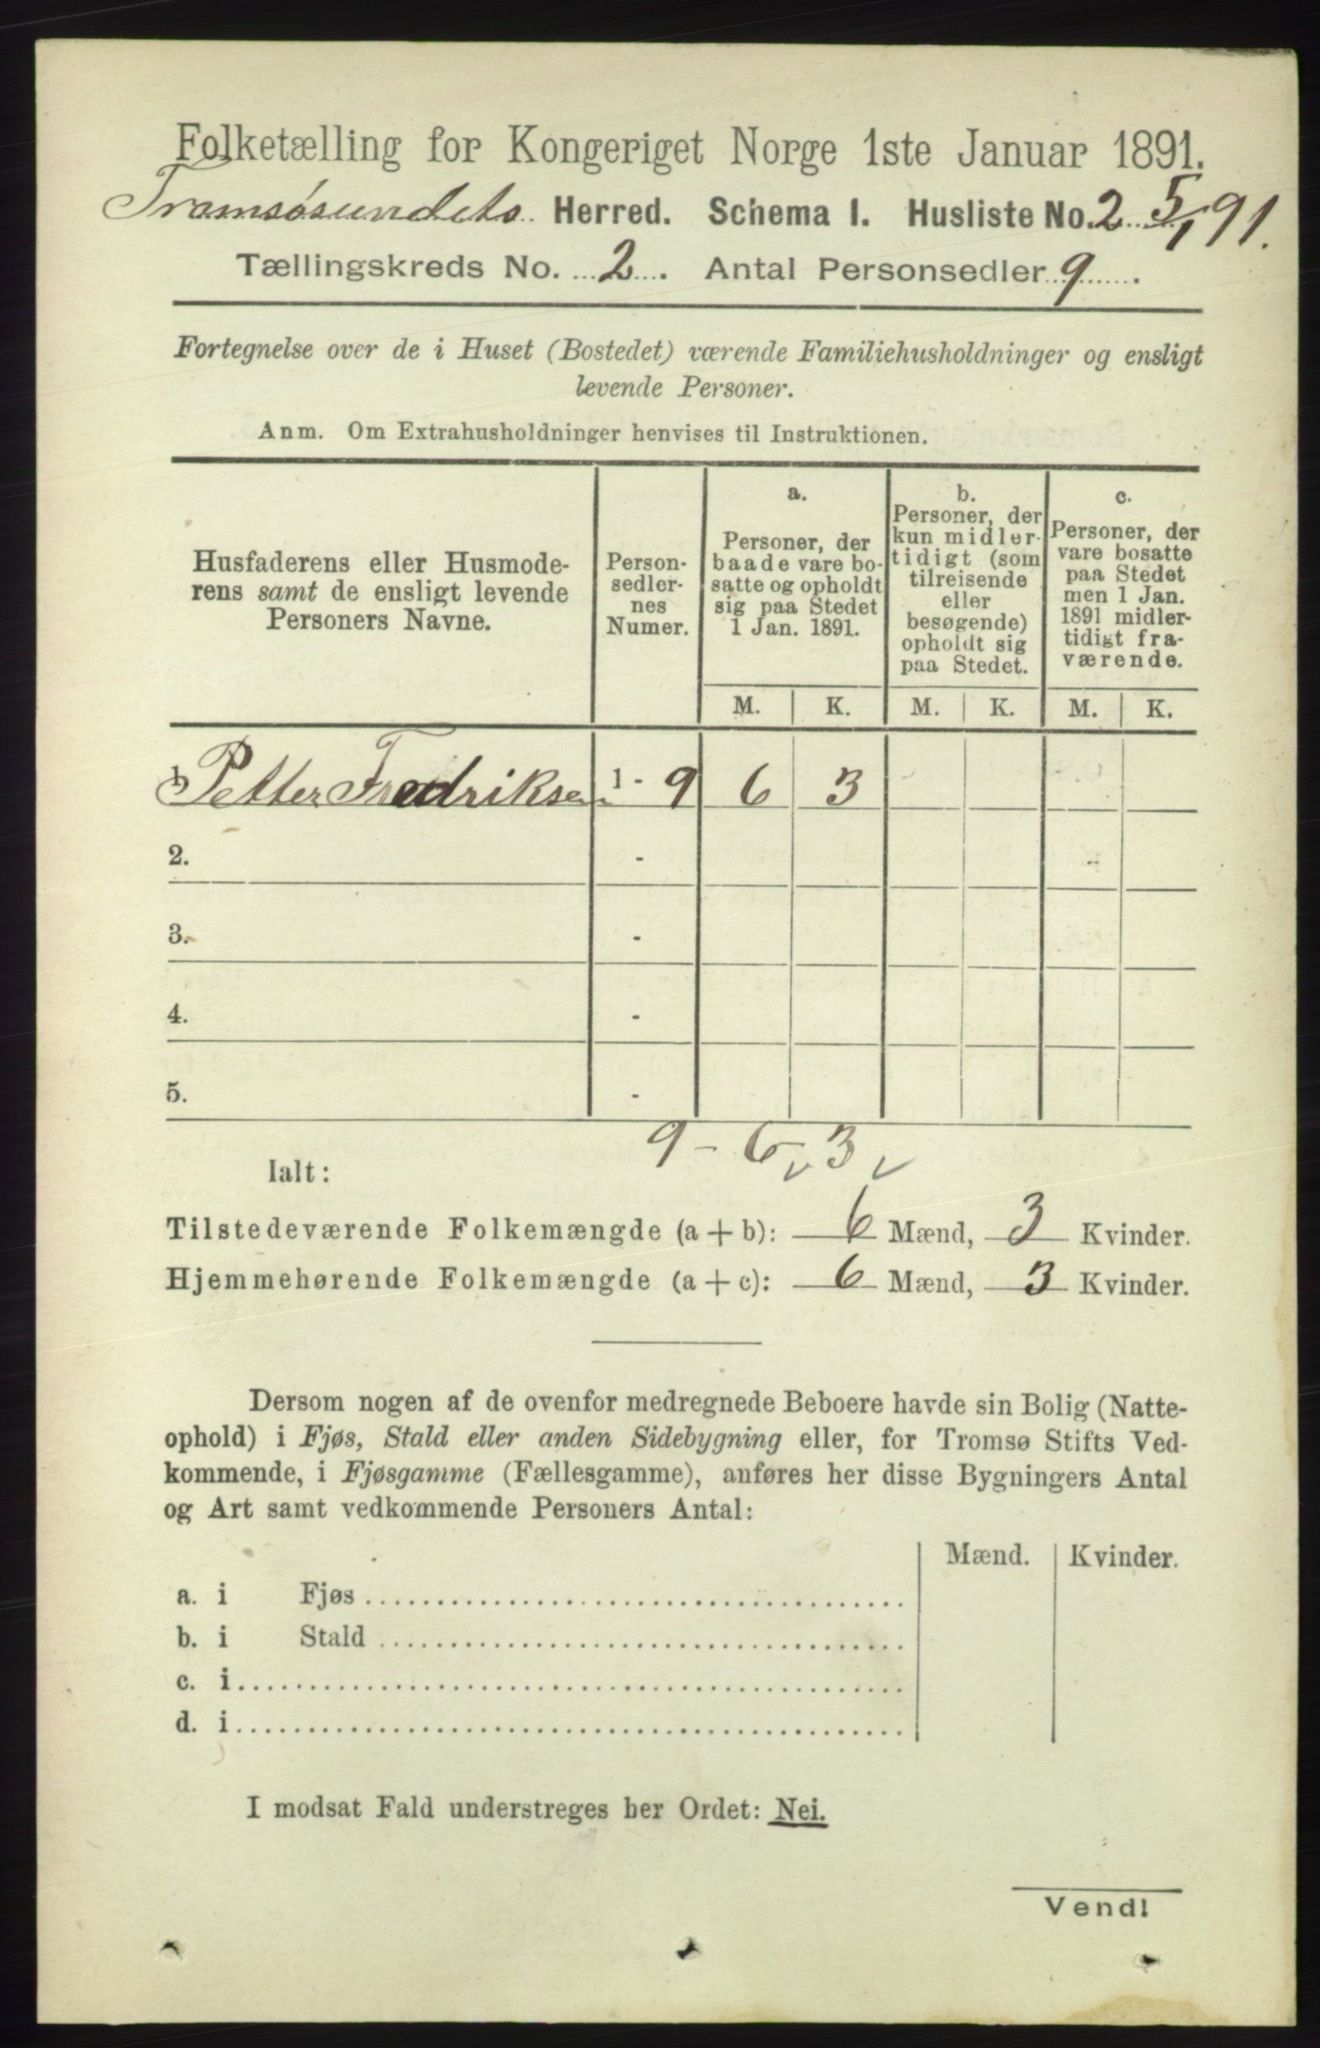 Folketælling for Kongeriget Norge 1ste Januar 1891.
Tromsøsundets Herred. Schema I. Husliste No. 2 5/1 91.
Tællingskreds No. 2. Antal Personsedler 9.
Fortegnelse over de i Huset (Bostedet) værende Familiehusholdninger og ensligt
levende Personer.
Anm. Om Extrahusholdninger henvises til Instruktionen.
Husfaderens eller Husmode-
rens samt de ensligt levende
Personers Navne.
Person-
sedler-
nes
Numer.
a.
Personer, der
baade vare bo-
satte og opholdt
sig paa Stedet
1 Jan. 1891.
b.
Personer, der
kun midler-
tidigt (som
tilreisende
eller
besøgende)
opholdt sig
paa Stedet.
c.
Personer, der
vare bosatte
paa Stedet
men 1 Jan.
1891 midler-
tidigt fra-
værende.
M. K. M. K. M. K.
1. Petter Fredriksen 1 - 9 6 3
2. -
3. -
4. -
5. -
9 - 6 3
Ialt:
Tilstedeværende Folkemængde (a + b): 6 Mænd, 3 Kvinder.
Hjemmehørende Folkemængde (a + c): 6 Mænd, 3 Kvinder.
Dersom nogen af de ovenfor medregnede Beboere havde sin Bolig (Natte-
ophold) i Fjøs, Stald eller anden Sidebygning eller, for Tromsø Stifts Ved-
kommende, i Fjøsgamme (Fællesgamme), anføres her disse Bygningers Antal
og Art samt vedkommende Personers Antal:
Mænd. Kvinder.
a. i Fjøs
b. i Stald
c. i
d. i
I modsat Fald understreges her Ordet: Nei.
Vend!